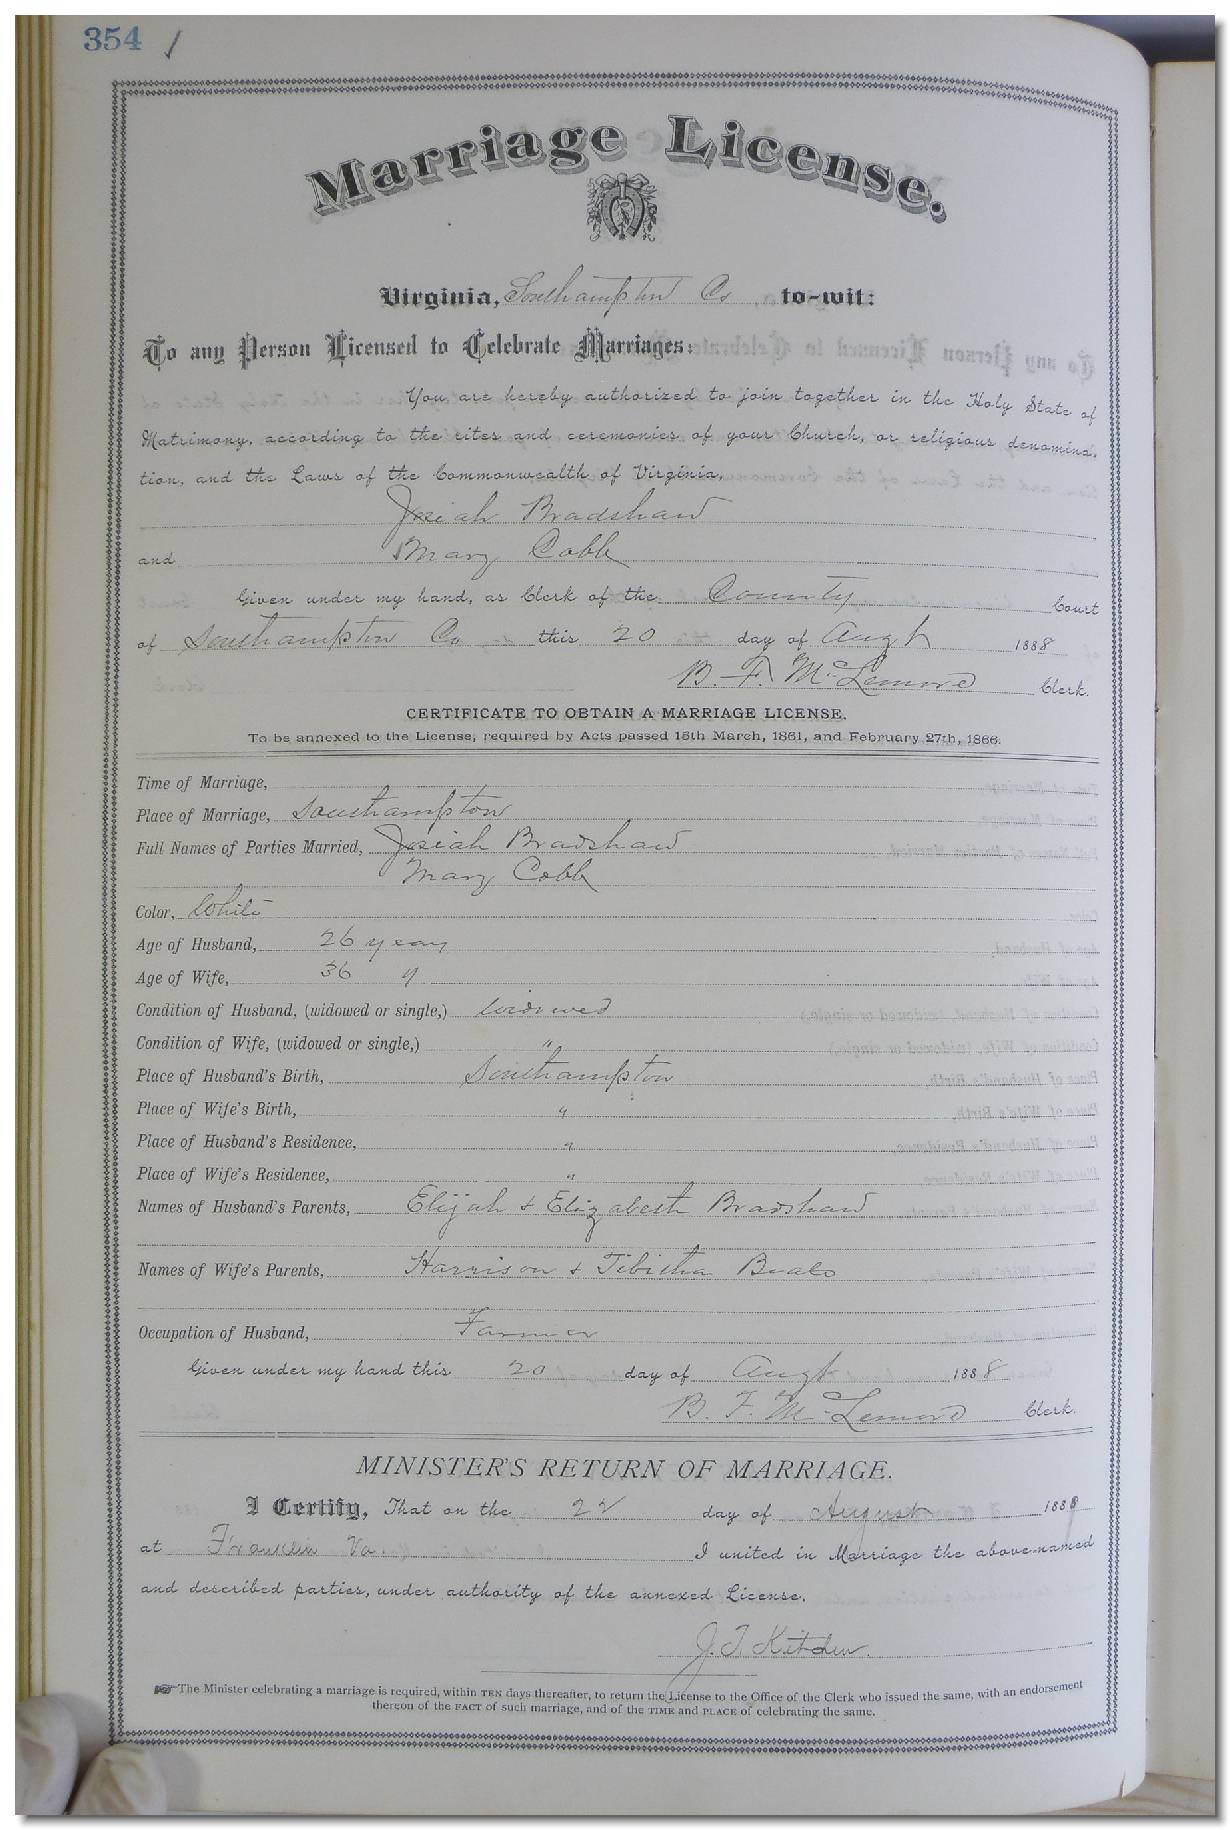 354
Marriage License.
Virginia, Southampton Co, to-wit:
To any Person Licensed to Celebrate Marriages:
You are hereby authorized to join together in the Holy State of
Matrimony, according to the rites and ceremonies of your Church, or religious denomina-
tion, and the Laws of the Commonwealth of Virginia,
Josiah Bradshaw
and Mary Cobb
Given under my hand, as Clerk of the County Court
of Southampton Co this 20 day of Augt 1888
B. F. McLemore Clerk.
CERTIFICATE TO OBTAIN A MARRIAGE LICENSE.
To be annexed to the License, required by Acts passed 15th March, 1861, and February 27th, 1866.
Time of Marriage,
Place of Marriage, Southampton
Full Names of Parties Married, Josiah Bradshaw
Mary Cobb
Color, White
Age of Husband, 26 years
Age of Wife, 36 "
Condition of Husband, (widowed or single,) widowed
Condition of Wife, (widowed or single,) "
Place of Husband's Birth, Southampton
Place of Wife's Birth, "
Place of Husband's Residence, "
Place of Wife's Residence, "
Names of Husband's Parents, Elijah & Elizabeth Bradshaw
Names of Wife's Parents, Harrison & Tibitha Beals
Occupation of Husband, Farmer
Given under my hand this 20 day of Augt 1888
B. F. McLemore Clerk.
MINISTER'S RETURN OF MARRIAGE.
I Certify, That on the 22 day of August 1888
at Franklin Va. I united in Marriage the above-named
and described parties, under authority of the annexed License.
J. T. Kitchen.
☞The Minister celebrating a marriage is required, within TEN days thereafter, to return the License to the Office of the Clerk who issued the same, with an endorsement
thereon of the FACT of such marriage, and of the TIME and PLACE of celebrating the same.